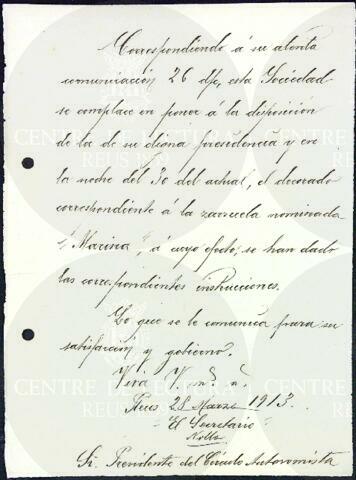 Correspondiendo á su atenta
comunicación 26 dpo, esta Sociedad
se complace en poner á la disposición
de la de su digna presidencia y en
la noche del 30 del actual, el decorado
correspondiente á la zarzuela nominada
"Marina", á cuyo efecto, se han dado
las correspondientes instrucciones.
Lo que se le comunica para su
satisfacción y gobierno.
Viva V. m. a.
Reus 28 Marzo 1913.
El Secretario
Sr. Presidente del Círculo Autonomista
CENTRE DE LECTURA
REUS 1859
CENTRE DE LECTURA
REUS 1859